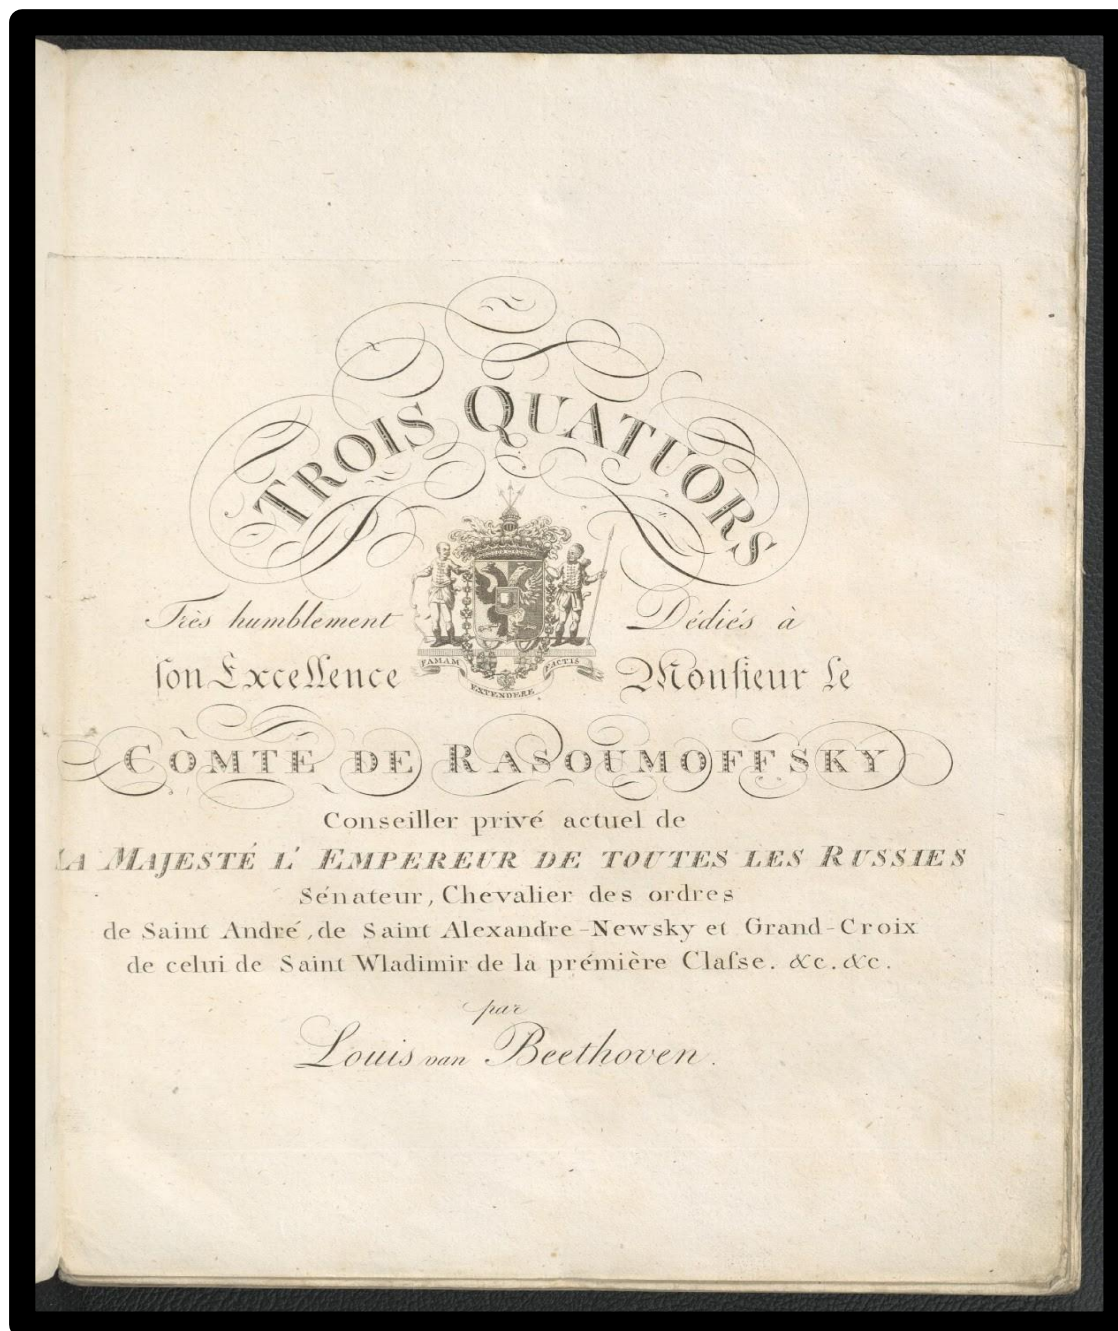 TROIS QUATUORS
Très humblement Dédiés à
ſon Excellence Monſieur le
FAMAM EXTENDERE FACTIS
COMTE DE RASOUMOFFSKY
Conseiller privé actuel de
SA MAJESTÉ L' EMPEREUR DE TOUTES LES RUSSIES
Sénateur, Chevalier des ordres
de Saint André, de Saint Alexandre-Newsky et Grand-Croix
de celui de Saint Wladimir de la prémière Claſse. &c. &c.
par
Louis van Beethoven.